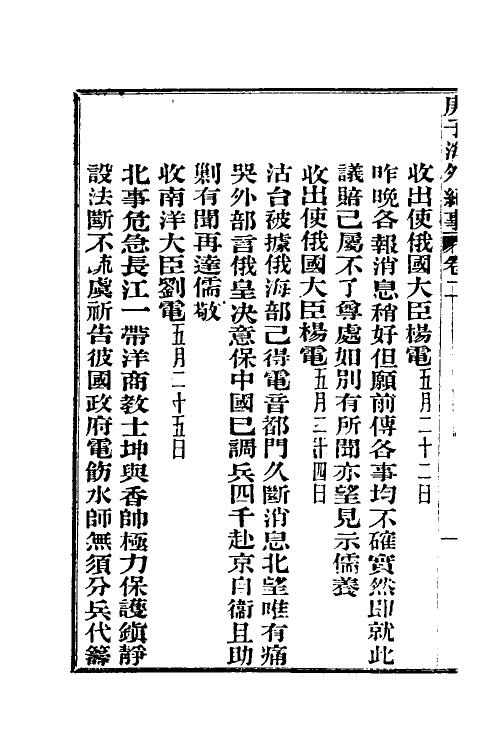 庚子海外紀事 卷二
收出使俄國大臣楊電五月二十二日
昨晚各報消息稍好但願前傳各事均不確實然即就此
議賠已屬不了尊處如別有所聞亦望見示儒養
收出使俄國大臣楊電五月二十四日
沽台被據俄海部已得電音都門久斷消息北望唯有痛
哭外部言俄皇决意保中國已調兵四千赴京自衛且助
剿有聞再達儒敬
收南洋大臣劉電五月二十五日
北事危急長江一帶洋商敎士坤與香帥極力保護鎭靜
設法斷不疏虞祈告彼國政府電飭水師無須分兵代籌